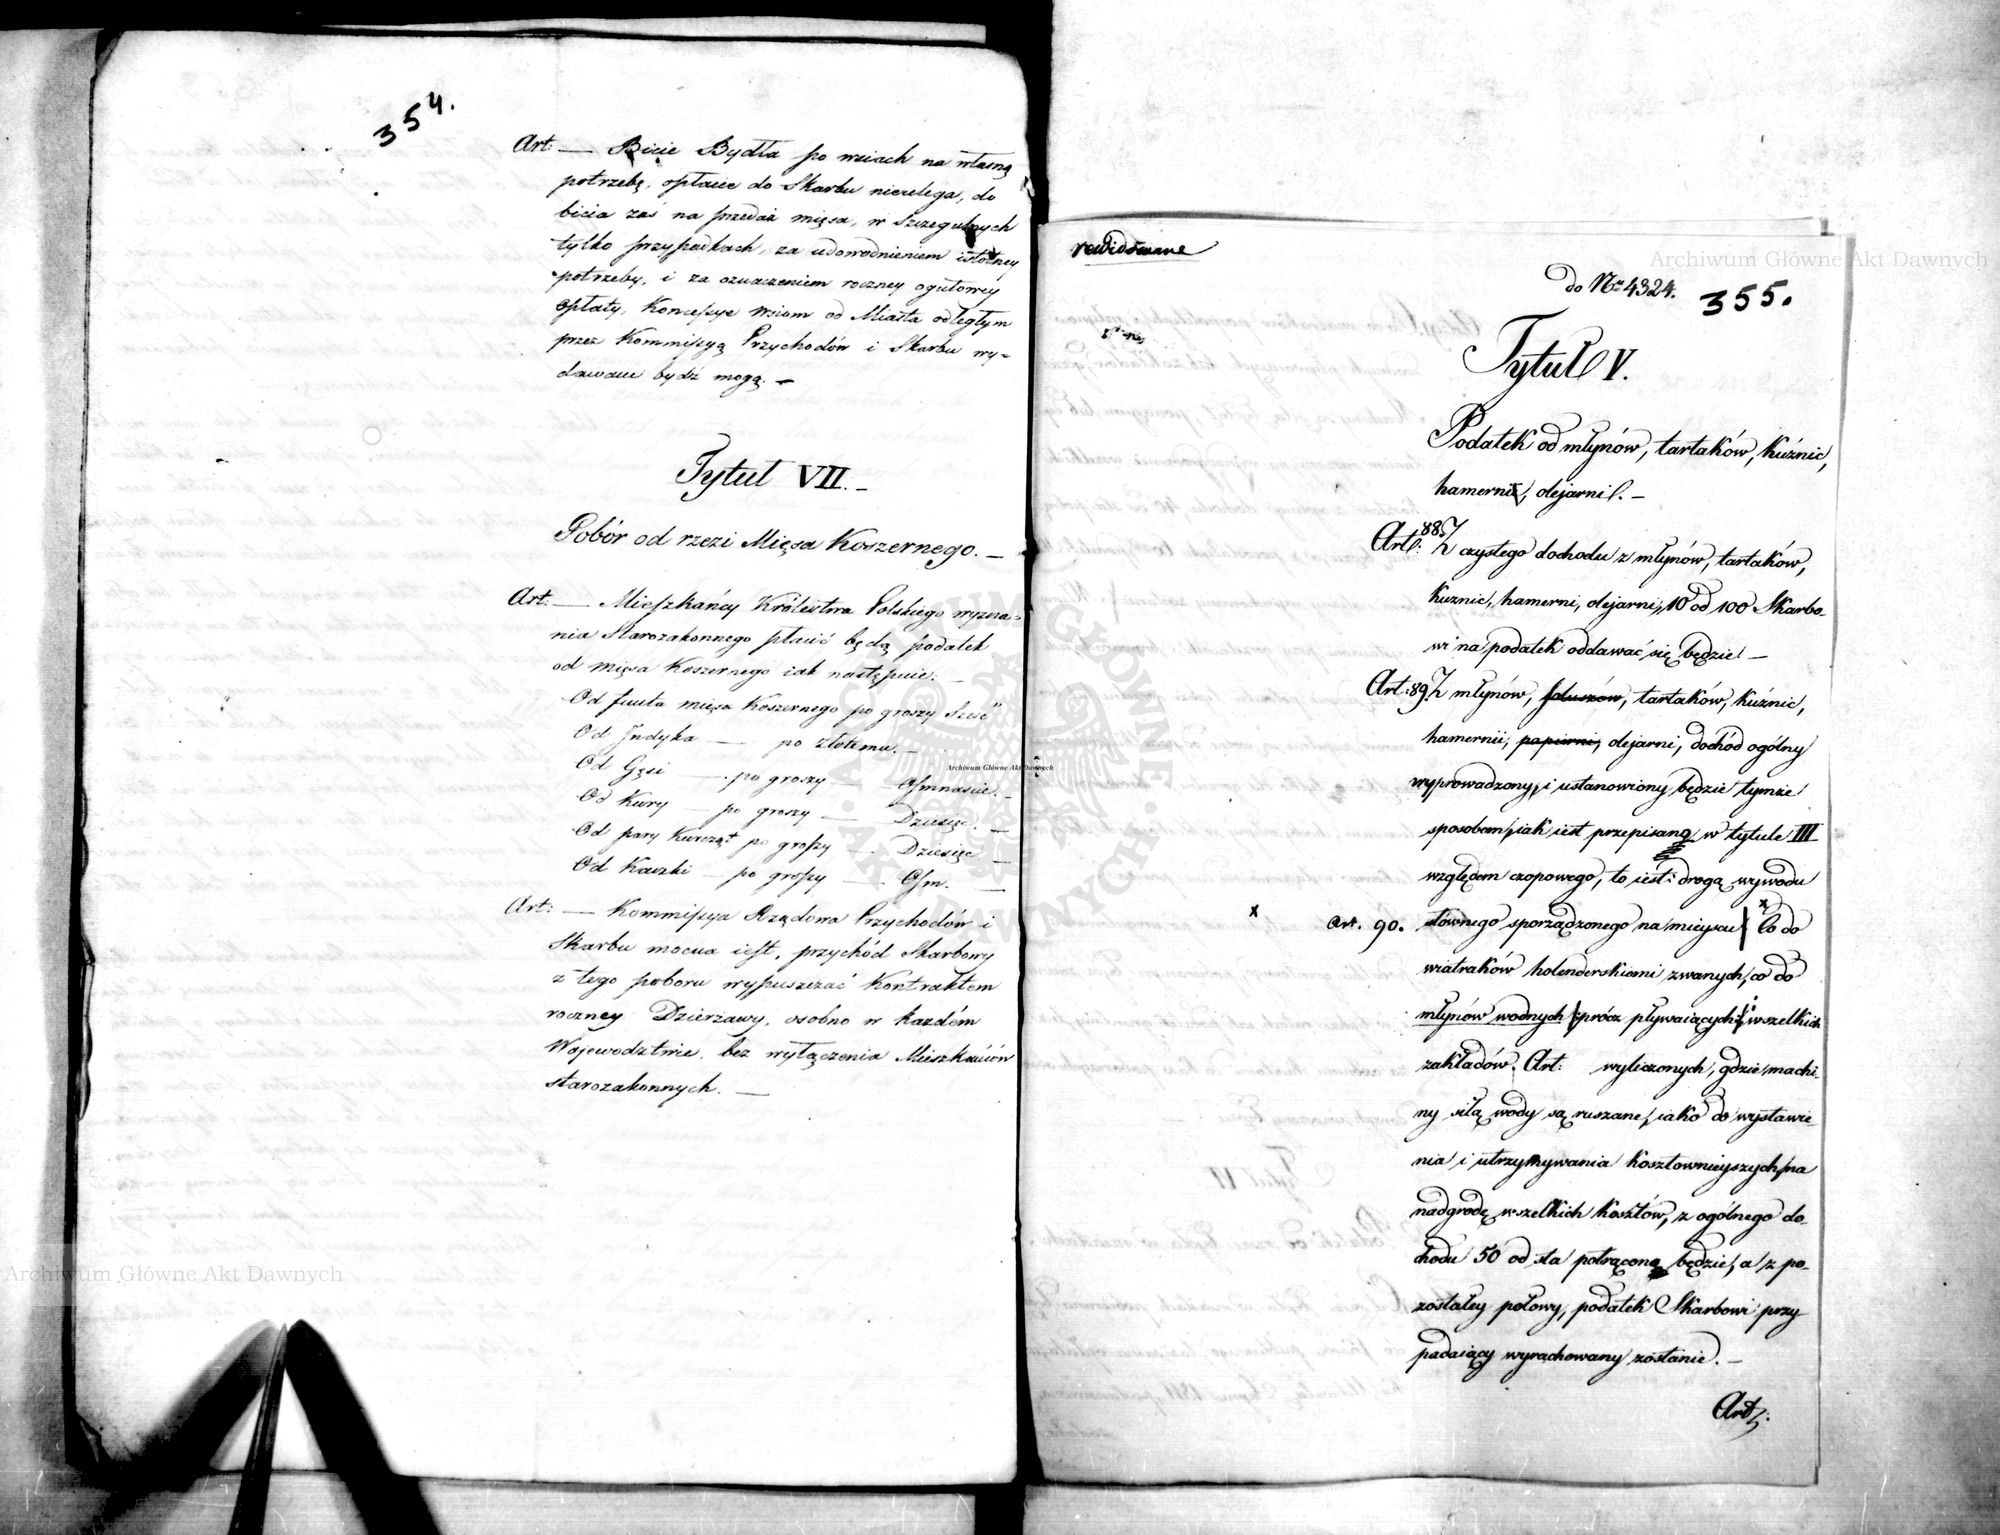 354.
Art: — Bicie Bydła po wsiach na własną
potrzebę, opłacie do Skarbu nieulega, do
bicia zaś na przedaż mięsa, w szczegulnych
tylko przypadkach, za udowodnieniem istotney
potrzeby, i za oznaczeniem roczney ogułowey
opłaty, Koncessye wsiom od Miasta odległym
przez Kommissyą Przychodów i Skarbu wy-
dawane bydź mogą. —
Tytuł VII. —
Pobór od rzezi Mięsa Koszernego. —
Art: — Mieszkańcy Królestwa Polskiego wyzna-
nia Starozakonnego płacić będą podatek
od mięsa Koszernego iak następuie: —
Od funta mięsa Koszernego po groszy sześć
Od Jndyka — po złotemu. —
Od Gęsi — po groszy — Osmnaście. —
Od Kury — po groszy — Dziesięć. —
Od pary Kurcząt po groszy — Dziesięć —
Od Kaczki — po groszy — Osm. —
Art: — Kommissya Rządowa Przychodów i
Skarbu mocna iest, przychód Skarbowy
z tego poboru wypuszczać Kontraktem
roczney Dzierżawy, osobno w każdém
Województwie, bez wyłączenia Mieszkańców
starozakonnych. —
rewidowane
do Nr 4324. 355.
Tytuł V.
Podatek od młynów, tartaków, kuźnic,
hamerni, olejarni. —
Art: 88. Z czystego dochodu z młynów, tartaków,
kuznic, hamerni, olejarni, 10 od 100 Skarbo-
wi na podatek oddawać się będzie. —
Art: 89. Z młynów, foluszów, tartaków, kuźnic,
hamernii, papierni, olejarni, dochód ogólny
wyprowadzony, i ustanowiony będzie tymże
sposobem, iak iest przepisano w tytule III
względem czopowego, to iest: drogą wywodu
x Art. 90. słównego sporządzonego na mieyscu | x Co do
wiatraków holenderskiemi zwanych, co do
młynów wodnych (prócz pływaiących) i wszelkich
zakładów. Art: wyliczonych, gdzie machi-
ny siłą wody są ruszane, iako do wystawie-
nia i utrzymywania kosztownieyszych, na
nadgrodę wszelkich kosztów, z ogólnego do-
chodu 50 od sta potrącone będzie, a z po-
zostałey połowy, podatek Skarbowi przy
padaiący wyrachowany zostanie. —
Art:
Archiwum Główne Akt Dawnych
Archiwum Główne Akt Dawnych
Archiwum Główne Akt Dawnych